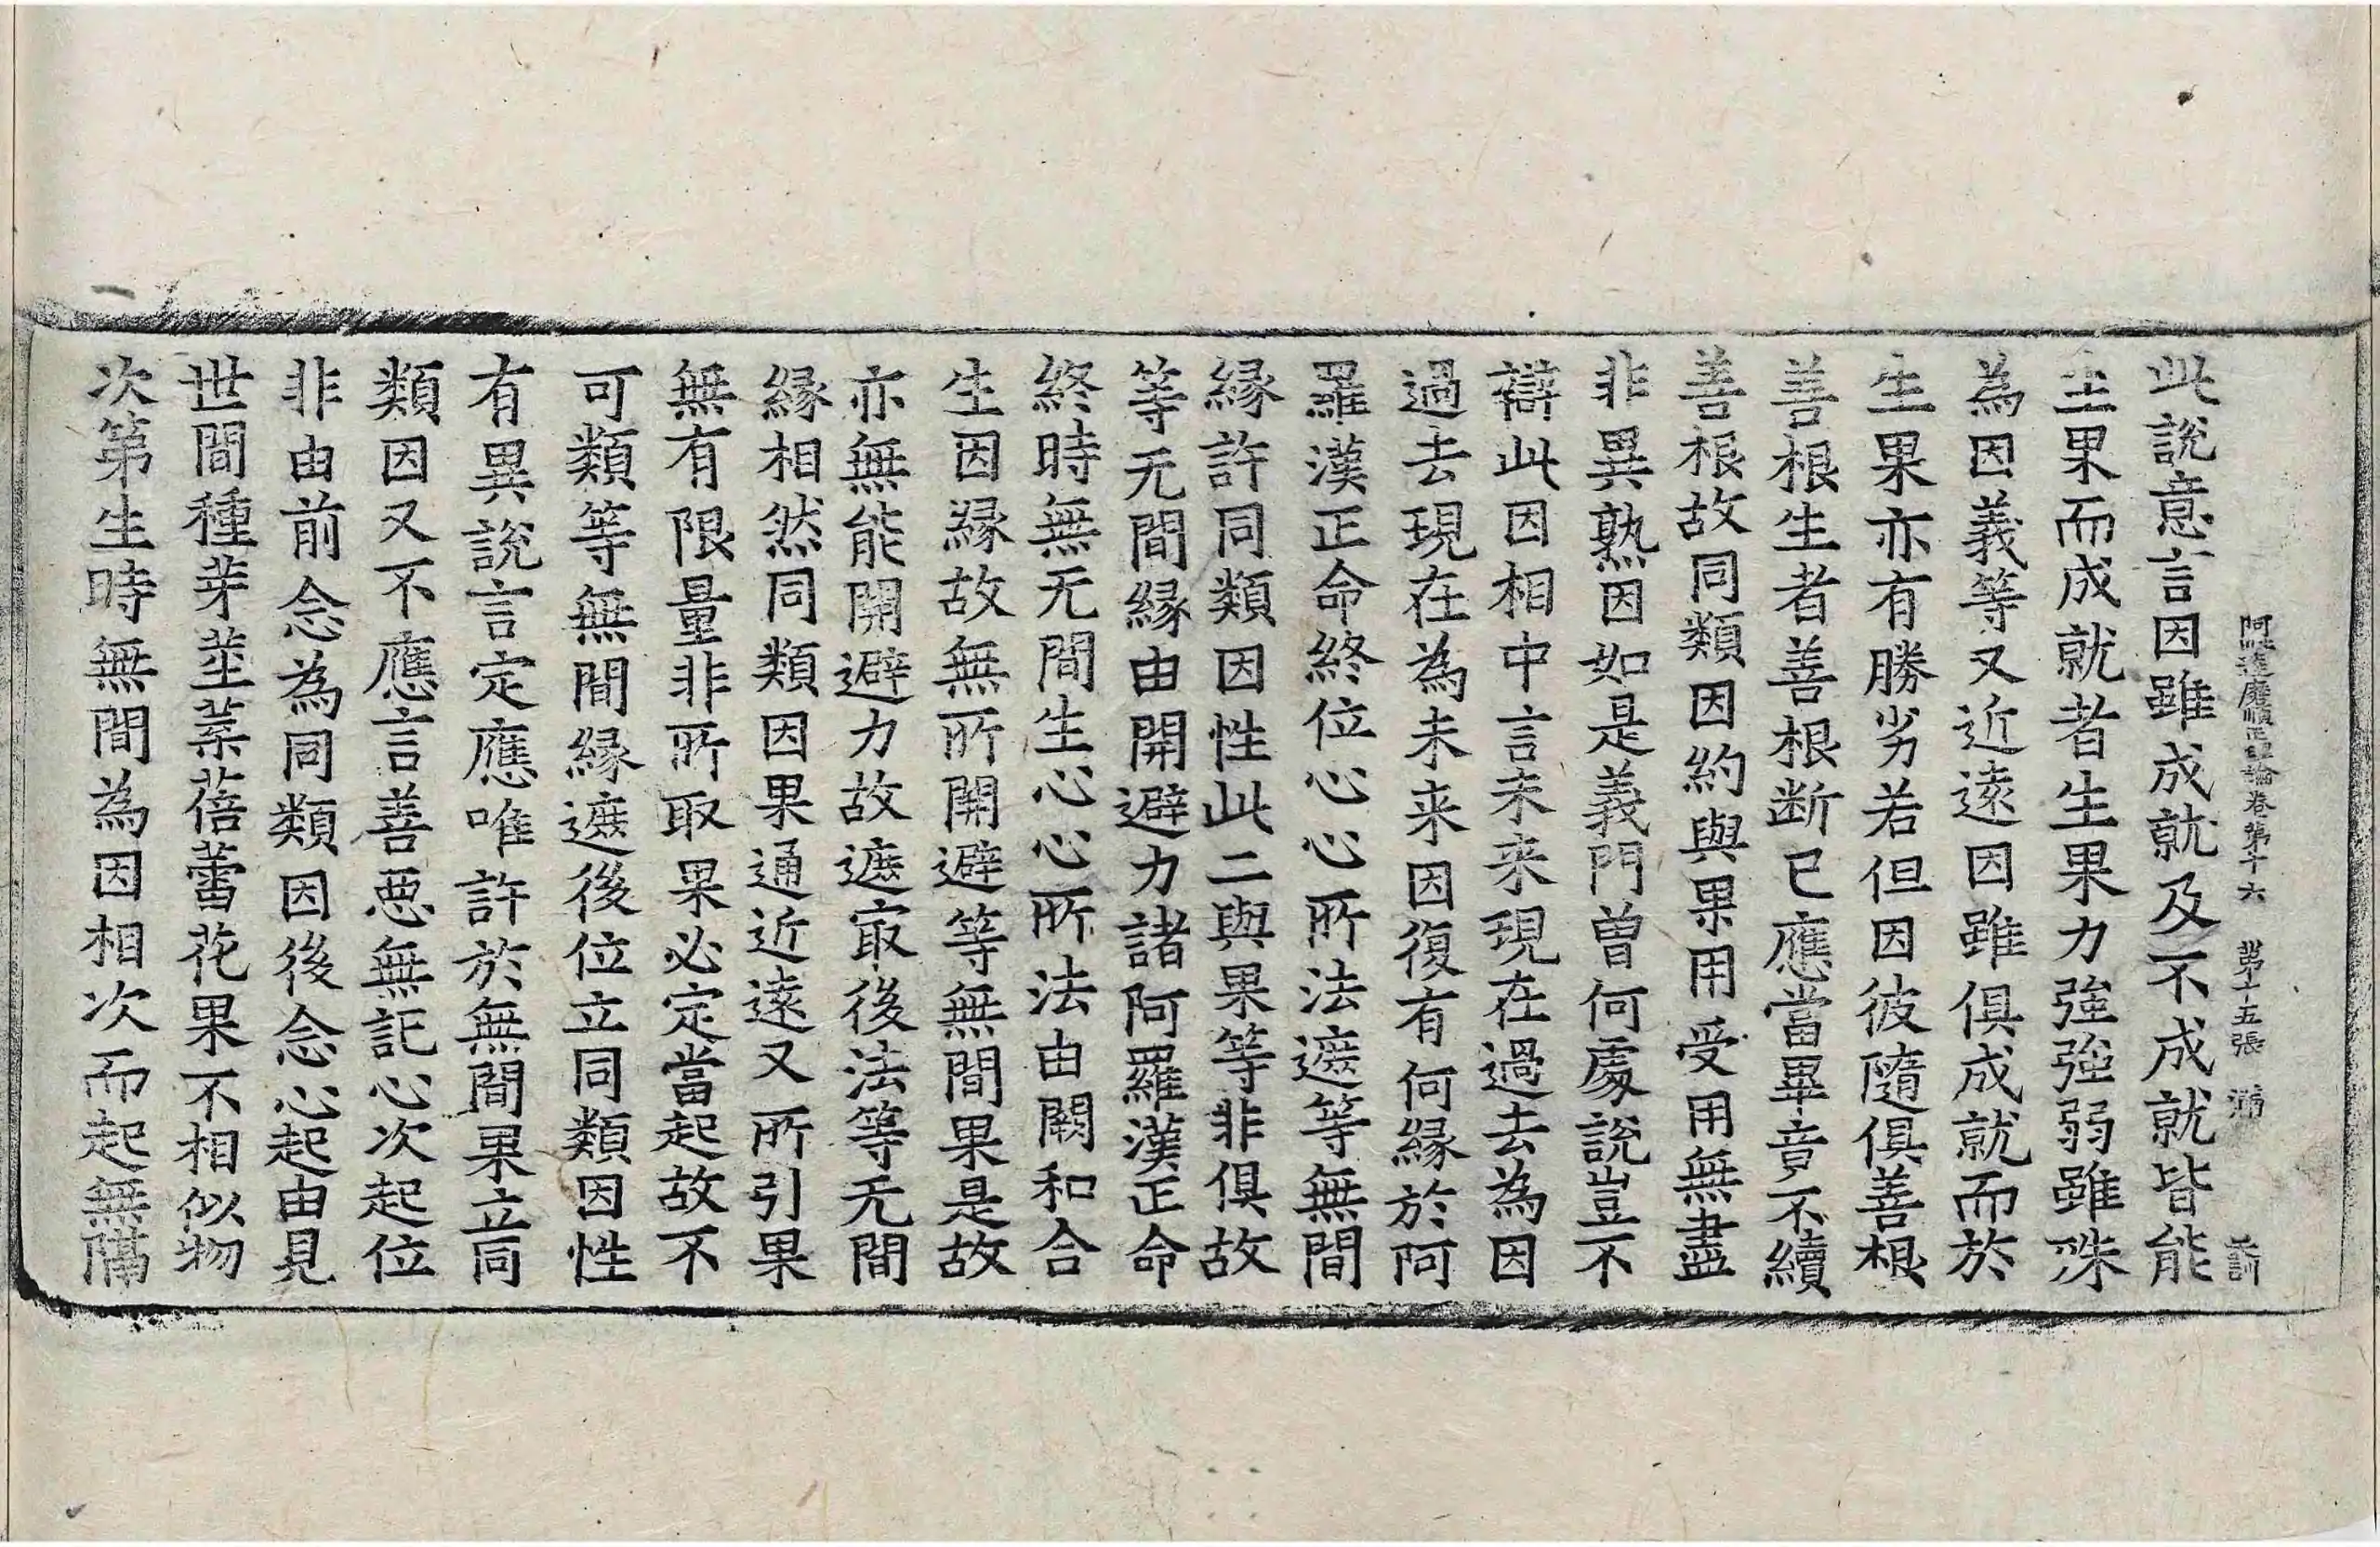 阿毗達磨順正理論卷第十六　第十五張　滿
此説意言因雖成就及不成就皆能
生果而成就者生果力強強弱雖殊
為因義等又近遠因雖俱成就而於
生果亦有勝劣若但因彼隨俱善根
善根生者善根断已應當畢竟不續
善根故同類因約與果用受用無盡
非異熟因如是義門曾何處説豈不
辯此因相中言未来現在過去為因
過去現在為未来因復有何縁於阿
羅漢正命終位心心所法遮等無間
縁許同類因性此二與果等非俱故
等无間縁由開避力諸阿羅漢正命
終時無无間生心心所法由闕和合
生因縁故無所開避等無間果是故
亦無能開避力故遮冣後法等无間
縁相然同類因果通近遠又所引果
無有限量非所取果必定當起故不
可類等無間縁遮後位立同類因性
有異説言定應唯許於無間果立同
類因又不應言善惡無記心次起位
非由前念為同類因後念心起由見
世間種芽莖葉蓓蕾花果不相似物
次第生時無間為因相次而起無隔